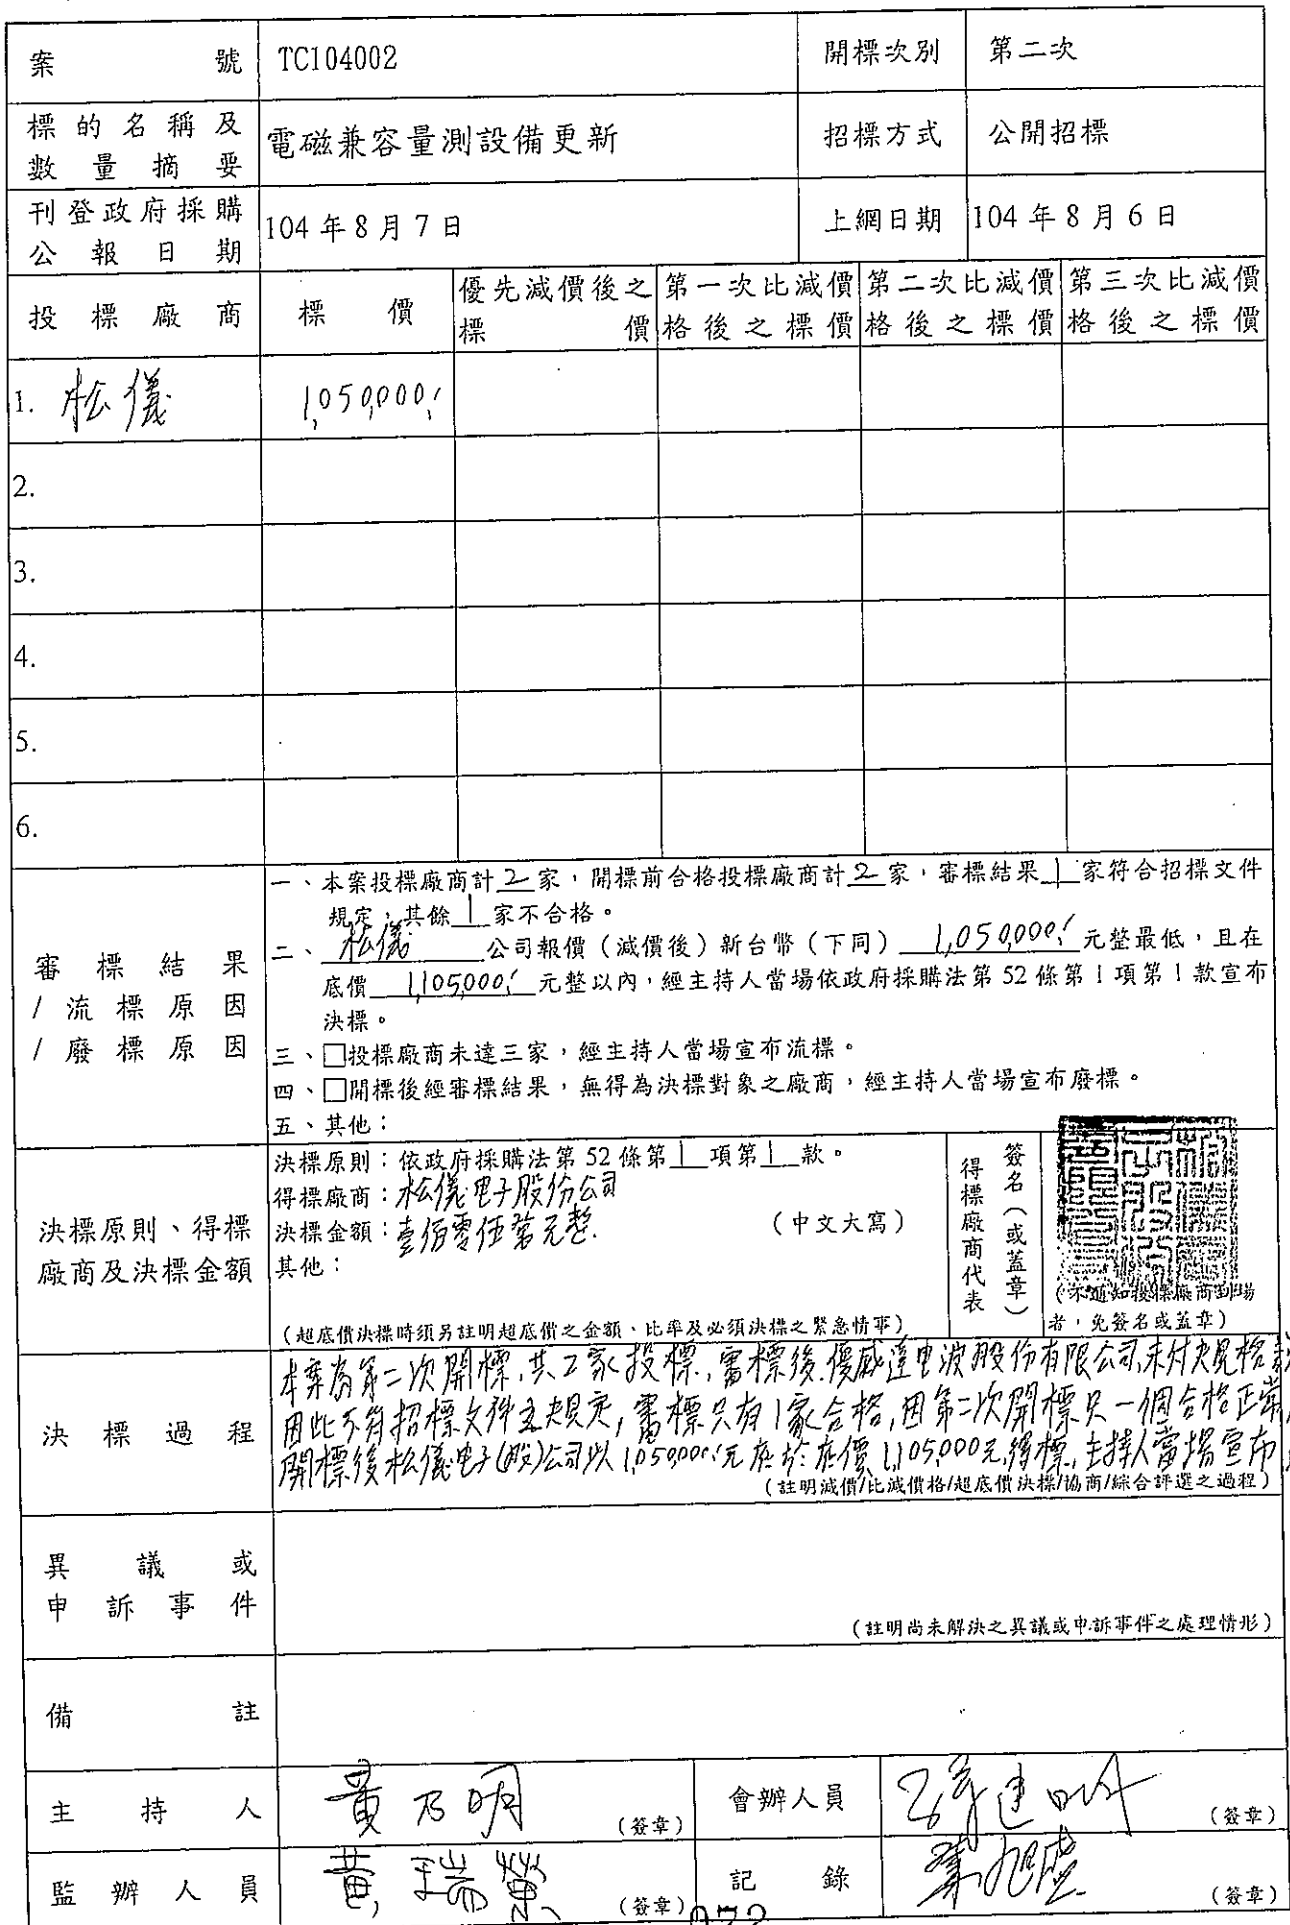 案號 TC104002 開標次別 第二次
標的名稱及數量摘要 電磁兼容量測設備更新 招標方式 公開招標
刊登政府採購公報日期 104年8月7日 上網日期 104年8月6日
投標廠商 標價 優先減價後之標價 第一次比減價格後之標價 第二次比減價格後之標價 第三次比減價格後之標價
1. 松儀 1,050,000.
2.
3.
4.
5.
6.
審標結果/流標原因/廢標原因
一、本案投標廠商計2家,開標前合格投標廠商計2家,審標結果1家符合招標文件
規定,其餘1家不合格。
二、松儀公司報價(減價後)新台幣(下同)1,050,000.元整最低,且在
底價1,105,000.元整以內,經主持人當場依政府採購法第52條第1項第1款宣布
決標。
三、□投標廠商未達三家,經主持人當場宣布流標。
四、□開標後經審標結果,無得為決標對象之廠商,經主持人當場宣布廢標。
五、其他:
決標原則、得標廠商及決標金額
決標原則:依政府採購法第52條第1項第1款。
得標廠商:松儀电子股份公司
決標金額:壹佰零伍萬元整. (中文大寫)
其他:
(超底價決標時須另註明超底價之金額、比率及必須決標之緊急情事)
得標廠商代表
簽名(或蓋章)
(未通知投標廠商到場
者,免簽名或蓋章)
決標過程
本案為第二次開標,共2家投標,審標後,優威達电波股份有限公司,未付夬規格
因此不符招標文件之規定,審標只有1家合格,因第二次開標只一個合格正常
開標後松儀电子(股)公司以1,050,000.元底於底價1,105,000元,得標,主持人當場宣布
(註明減價/比減價格/超底價決標/協商/綜合評選之過程)
異議或申訴事件
(註明尚未解決之異議或申訴事件之處理情形)
備註
主持人 黃乃明 (簽章) 會辦人員 (簽章)
監辦人員 黃瑞榮 (簽章) 記錄 葉旭 (簽章)